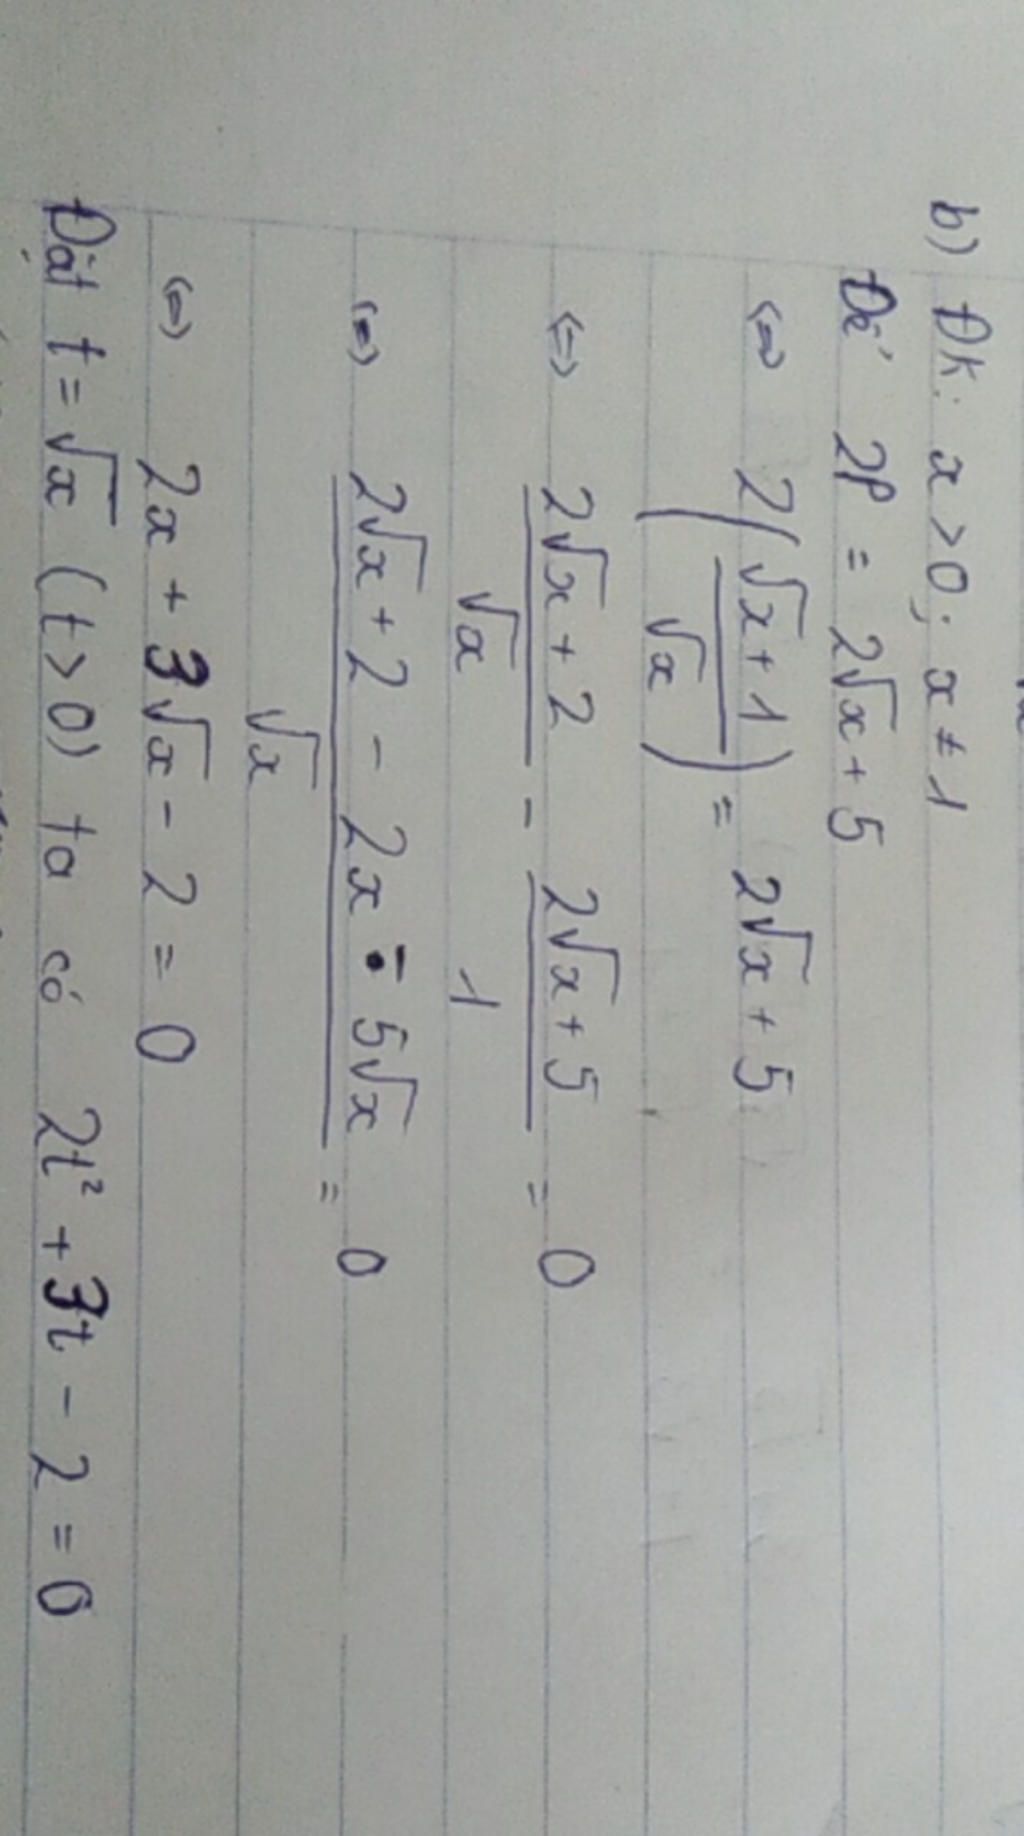 b) ĐK: x > 0; x ≠ 1
Để 2P = 2√x + 5
<=> 2((√x + 1)/√x) = 2√x + 5
<=> (2√x + 2)/√x - (2√x + 5)/1 = 0
<=> (2√x + 2 - 2x - 5√x)/√x = 0
<=> 2x + 3√x - 2 = 0
Đặt t = √x (t > 0) ta có 2t² + 3t - 2 = 0